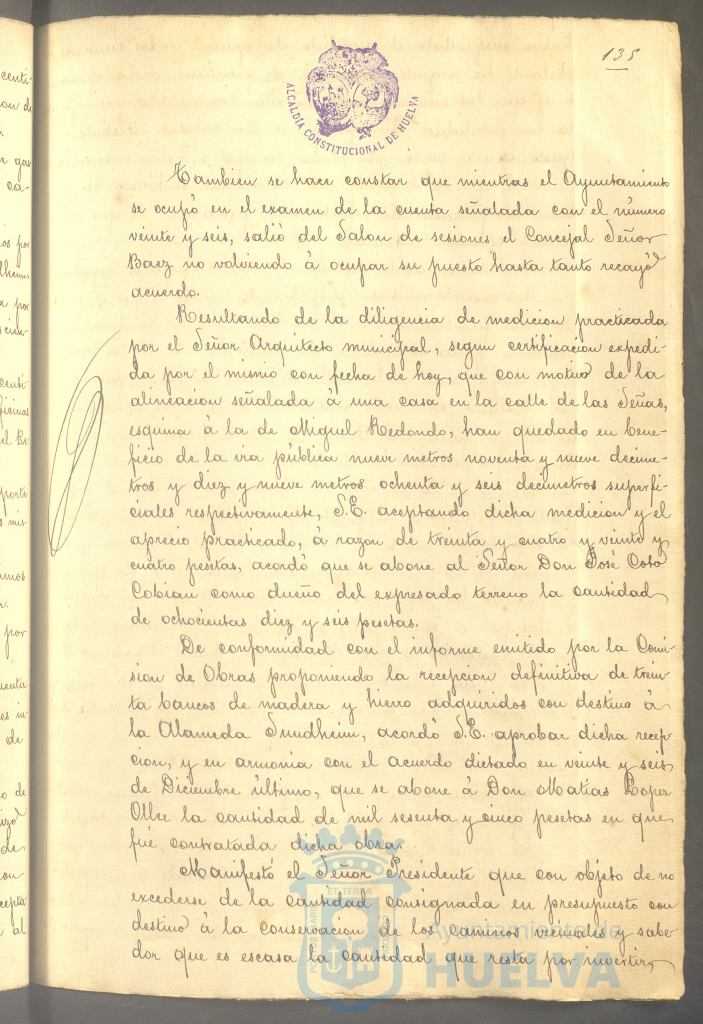 135
ALCALDÍA CONSTITUCIONAL DE HUELVA
Tambien se hace constar que mientras el Ayuntamiento
se ocupó en el examen de la cuenta señalada con el número
veinte y seis, salió del Salon de sesiones el Concejal Señor
Baez no volviendo á ocupar su puesto hasta tanto recayó
acuerdo.
Resultando de la diligencia de medicion practicada
por el Señor Arquitecto municipal, segun certificacion expedi-
da por el mismo con fecha de hoy, que con motivo de la
alineacion señalada á una casa en la calle de las Señas,
esquina á la de Miguel Redondo, han quedado en bene-
ficio de la via pública nueve metros noventa y nueve decime-
tros y diez y nueve metros ochenta y seis decimetros superfi-
ciales respectivamente, S.E. aceptando dicha medicion y el
aprecio practicado, á razon de treinta y cuatro y veinte y
cuatro pesetas, acordó que se abone al Señor Don José Coto
Cobian como dueño del expresado terreno la cantidad
de ochocientas diez y seis pesetas.
De conformidad con el informe emitido por la Comi-
sion de Obras proponiendo la recepcion definitiva de trein-
ta bancos de madera y hierro adquiridos con destino á
la Alameda Sundheim, acordó S.E. aprobar dicha recep-
cion, y en armonia con el acuerdo dictado en veinte y seis
de Diciembre último, que se abone á Don Matías Lopez
Oller la cantidad de mil sesenta y cinco pesetas en que
fué contratada dicha obra.
Manifestó el Señor Presidente que con objeto de no
excederse de la cantidad consignada en presupuesto con
destino á la conservacion de los caminos vecinales y sabe-
dor que es escasa la cantidad que resta por invertir,
Ayuntamiento de
HUELVA